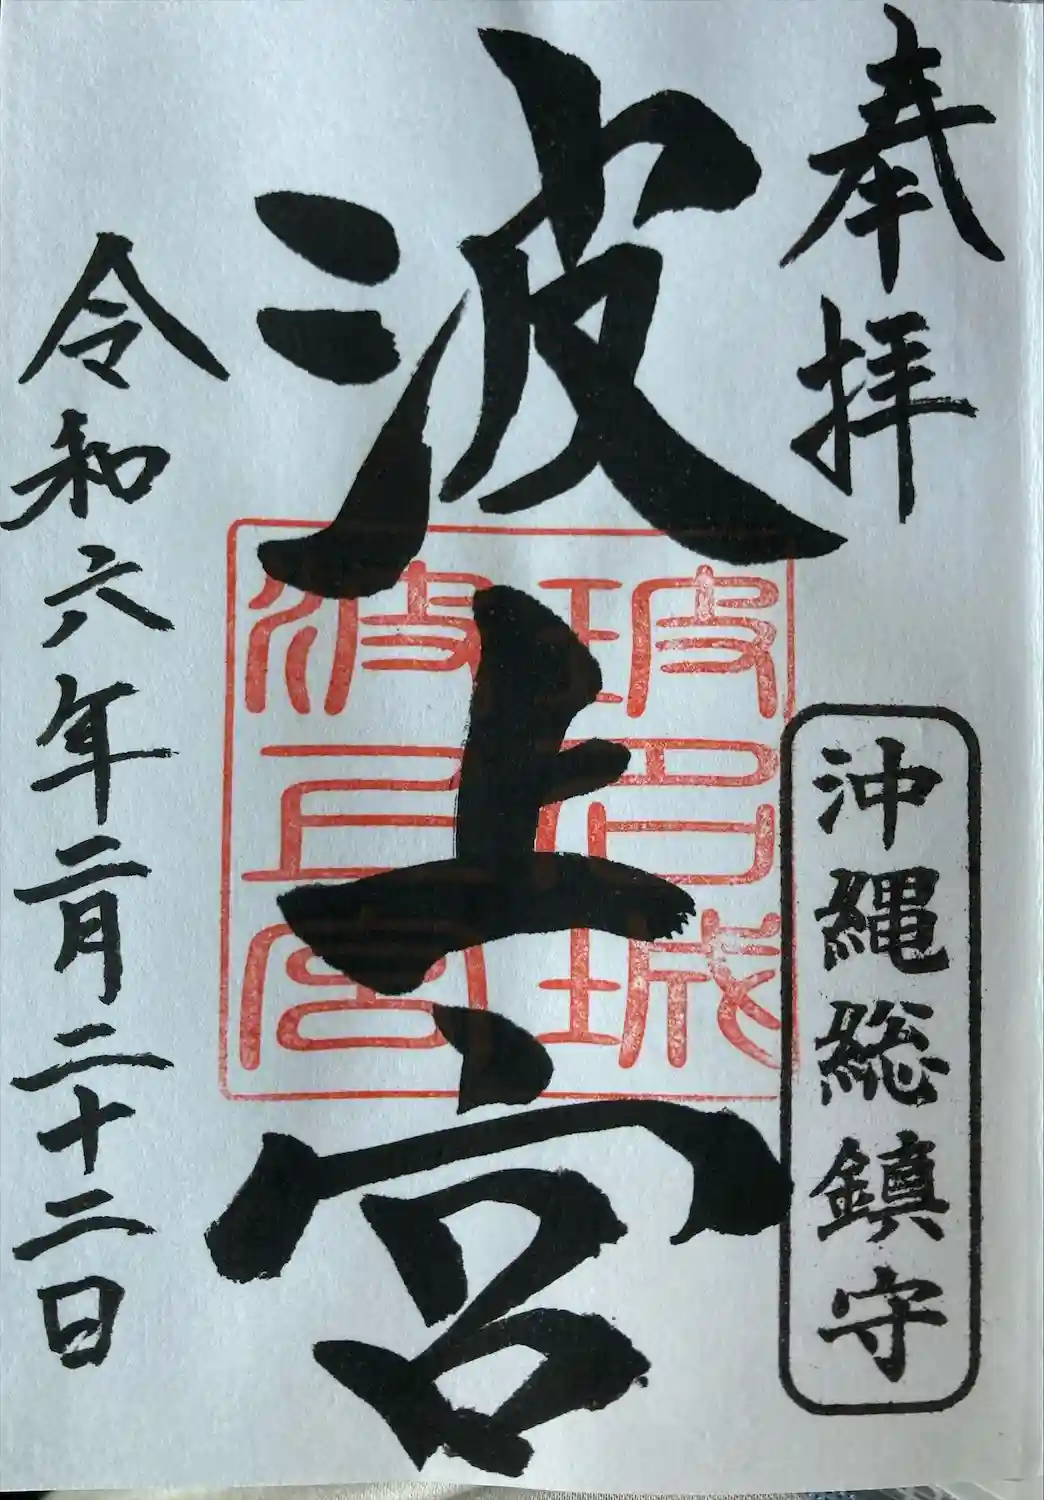 奉拝
沖縄総鎮守
波上宮
波上宮
令和六年二月二十二日